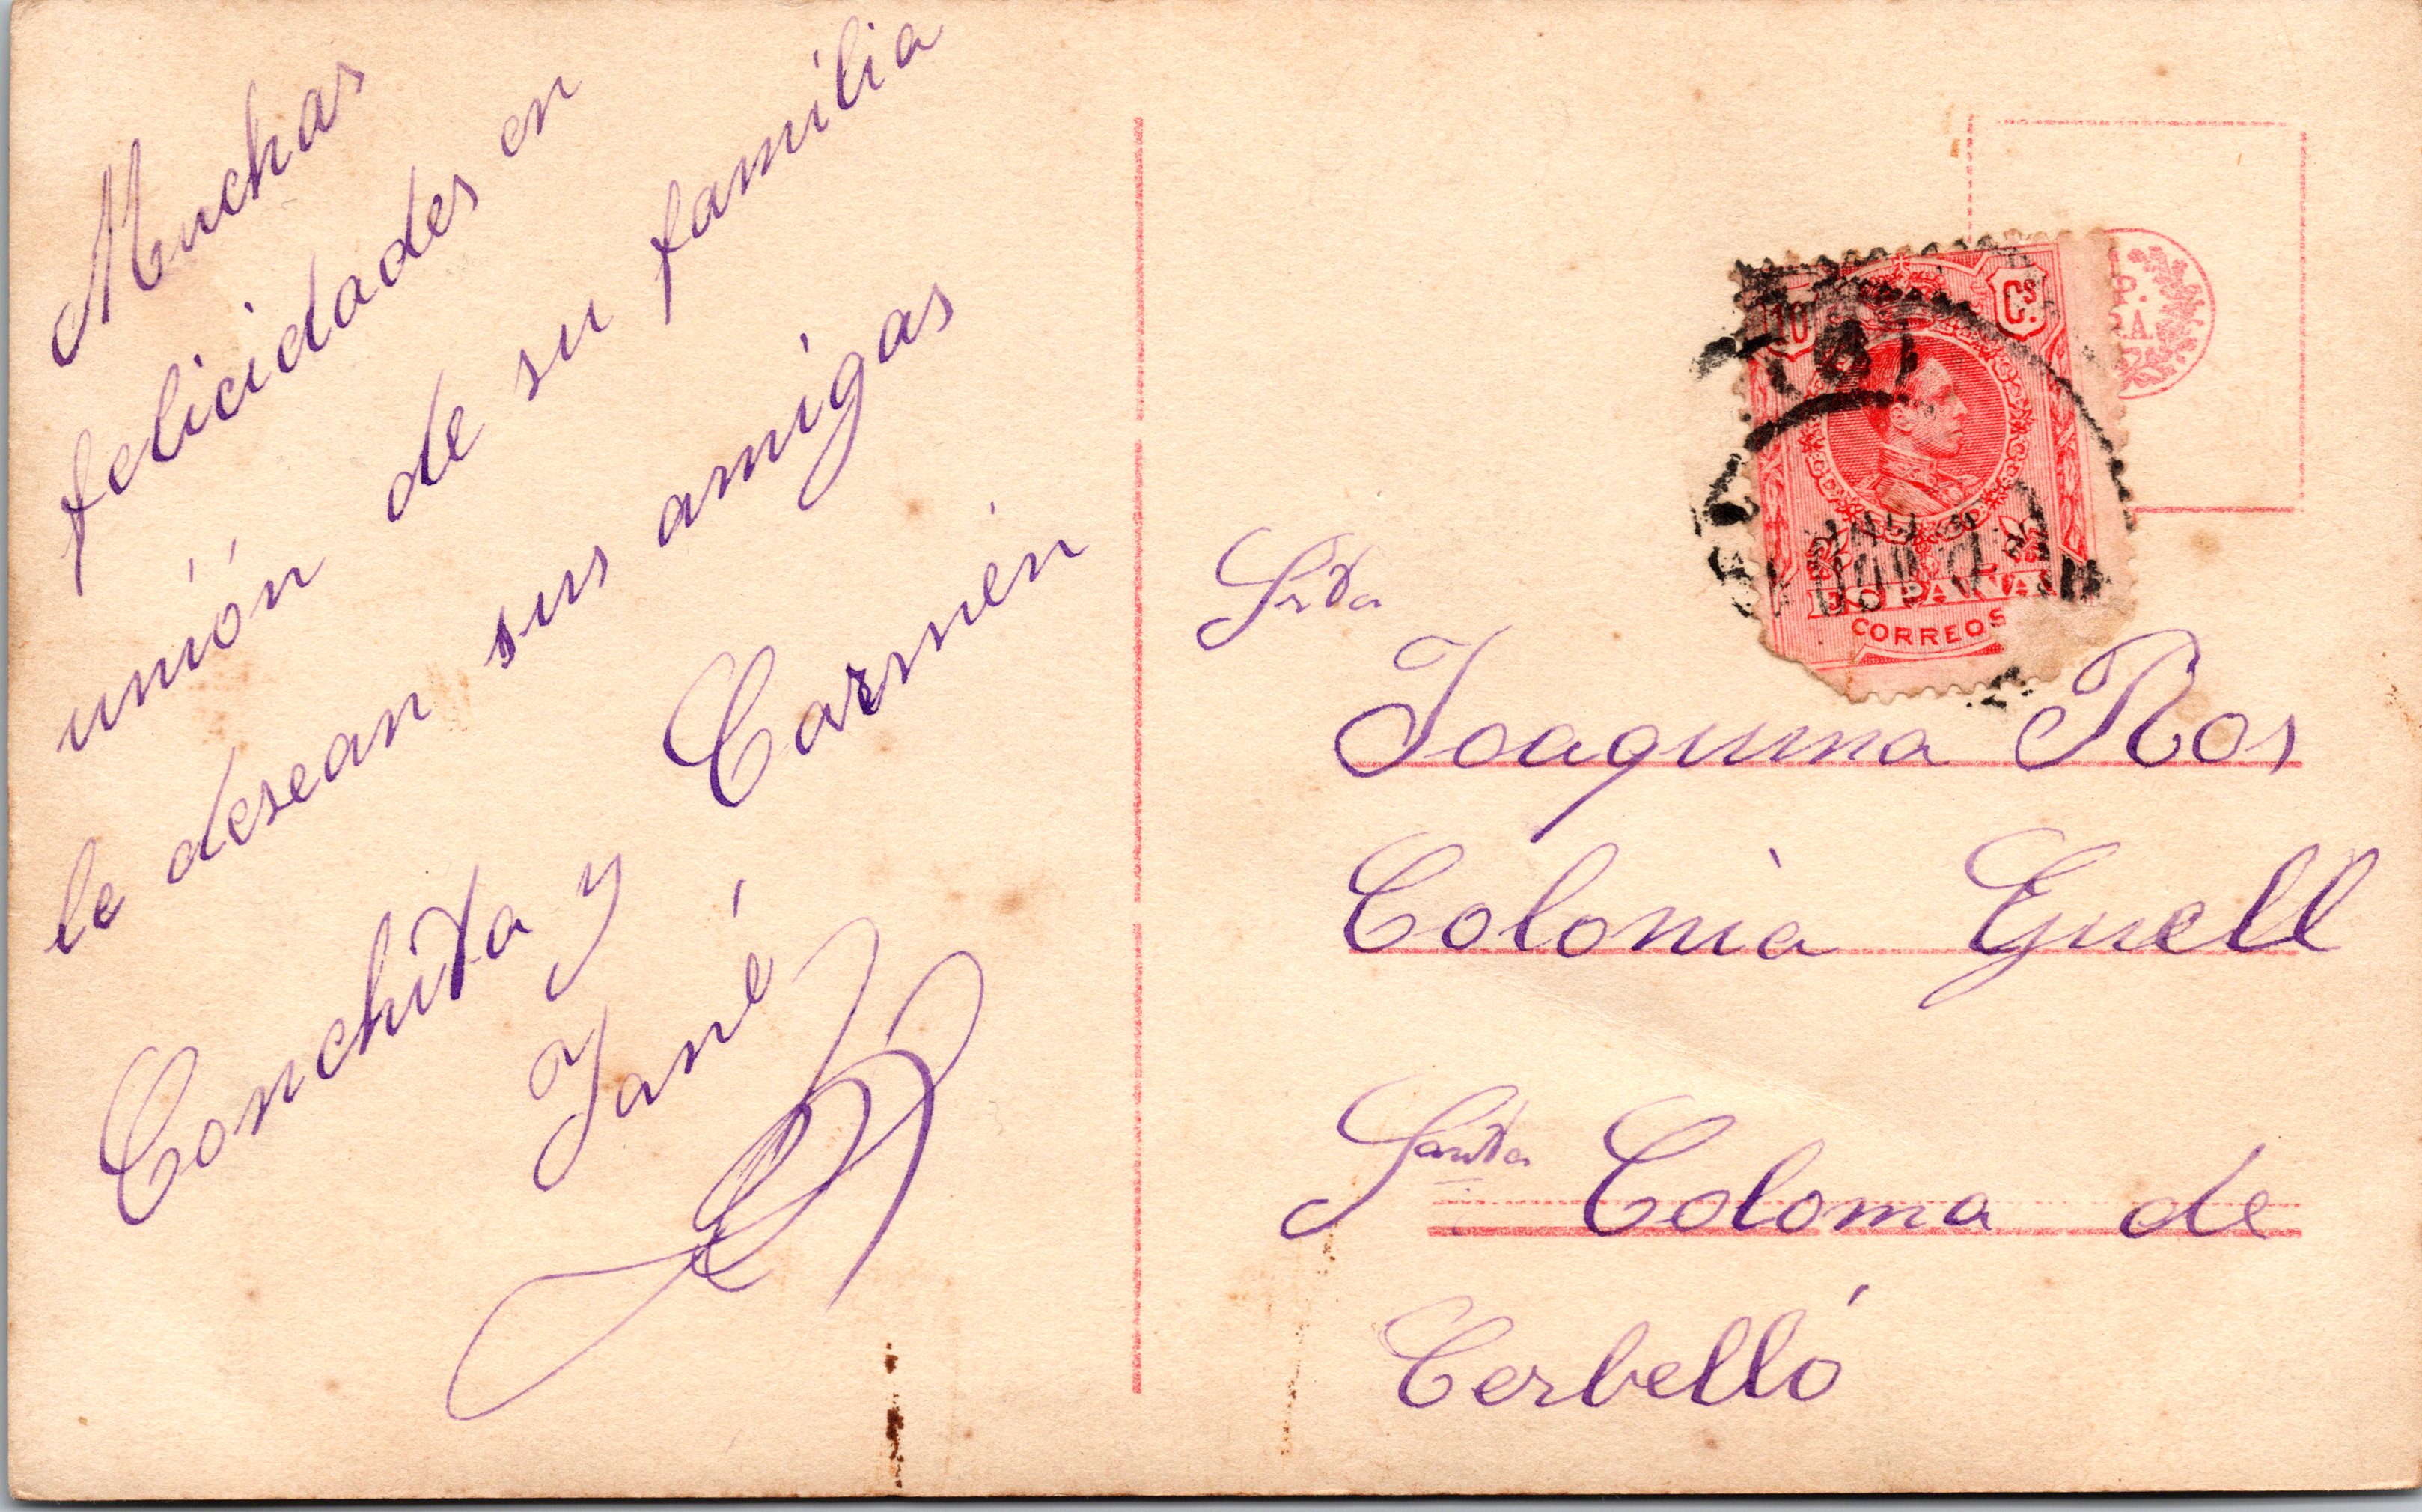 Muchas
felicidades en
unión de su familia
le desean sus amigas
Conchita y Carmén
Jané
10 Cs.
ESPAÑA
CORREOS
Srta
Joaquina Ros
Colonia Guell
Santa Coloma de
Cerbelló